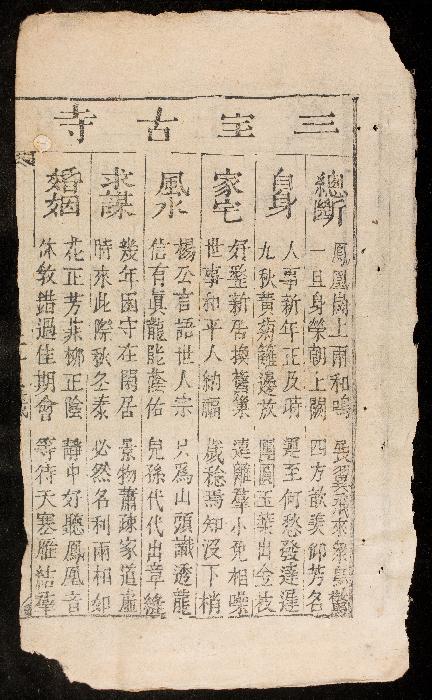 三宝古寺
總斷
鳳凰上兩和鳴 展翼飛來衆鳥驚
一旦身榮朝上闕 四方歆羨仰芳名
自身
人事新年正及時 運至何愁發達遲
九秋黃菊籬邊放 團圓玉葉出金枝
家宅
好遷新居換舊巢 遠離羣小免相噪
世事和平人納福 歲稔焉知没下梢
風水
楊公言語世人宗 只爲山頭識透龍
信有眞龍能蔭佑 兒孫代代出章縫
求謀
幾年困守在閒居 景物蕭疎家道虛
時來此際秋冬泰 必然名利兩相如
婚姻
花正芳菲柳正陰 靜中好聽鳳凰音
休教錯過佳期會 等待天寒雁結羣